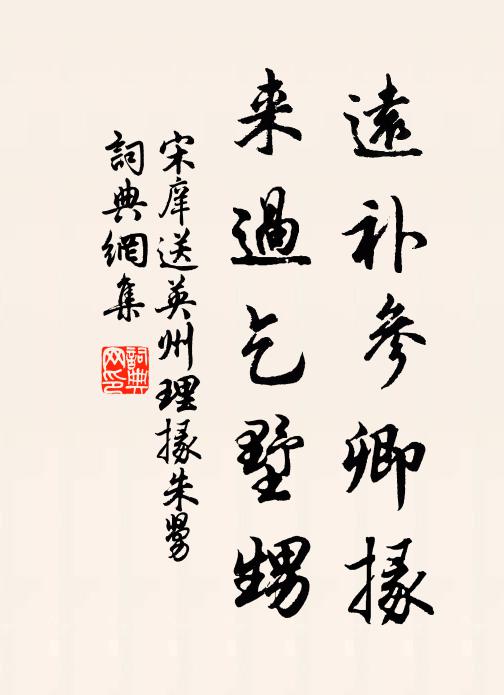 遠補參卿掾
来過乞墅甥
宋庠送英州理掾朱甥
詞典網集
詞典网印